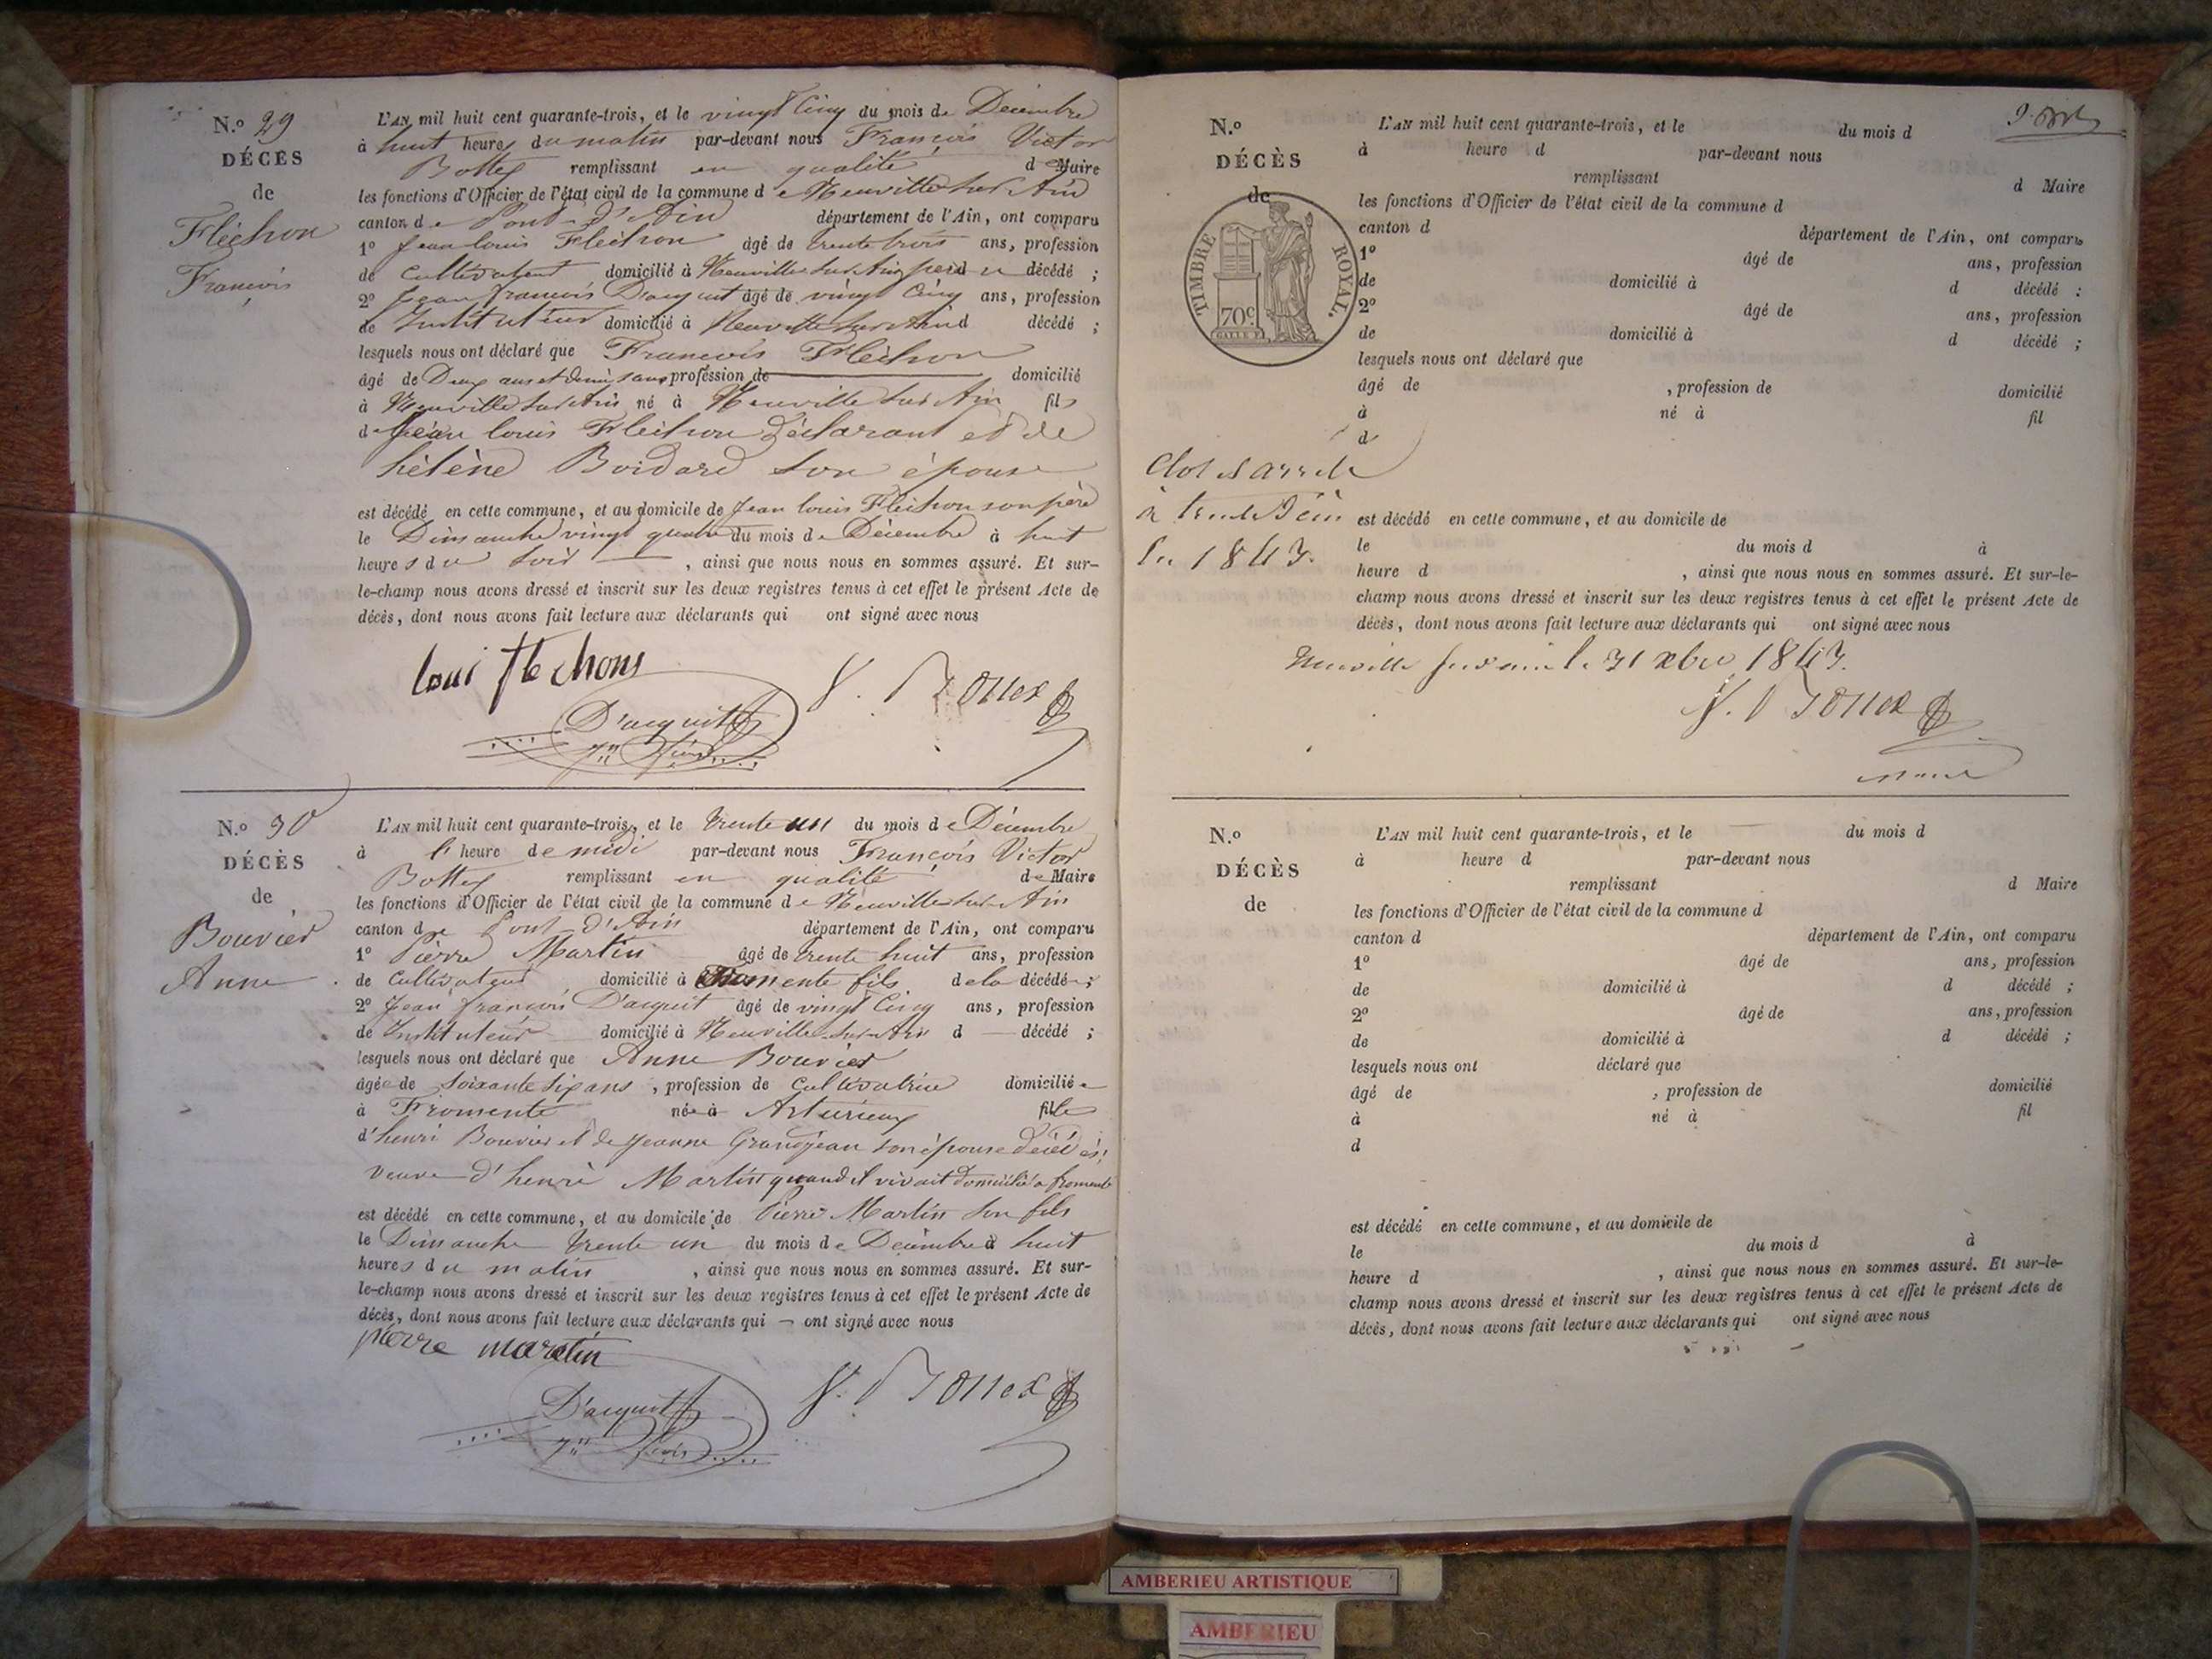 N.o 29
DÉCÈS
de
Fléchon
François
L'AN mil huit cent quarante-trois, et le vingt Cinq du mois de Décembre
à huit heures du matin par-devant nous François Victor
Bottex remplissant en qualité d Maire
les fonctions d'Officier de l'état civil de la commune de Neuville sur Ain
canton de Pont-d'Ain département de l'Ain, ont comparu
1o Jean louis Fléchon âgé de trente trois ans, profession
de Cultivateur domicilié à Neuville sur Ain père du décédé ;
2o Jean françois D'acquit âgé de vingt Cinq ans, profession
de Instituteur domicilié à Neuville sur Ain d décédé ;
lesquels nous ont déclaré que François Fléchon
âgé de Deux ans et demi, sans profession de domicilié
à Neuville sur Ain né à Neuville sur Ain fils
de Jean louis Fléchon Déclarant et de
hélène Boidard son épouse
est décédé en cette commune, et au domicile de Jean louis Fléchon son père
le Dimanche vingt quatre du mois de Décembre à huit
heures du Soir , ainsi que nous nous en sommes assuré. Et sur-
le-champ nous avons dressé et inscrit sur les deux registres tenus à cet effet le présent Acte de
décès, dont nous avons fait lecture aux déclarants qui ont signé avec nous
loui flechons
D'acquit
V. Bottex
N.o 30
DÉCÈS
de
Bouvier
Anne
L'AN mil huit cent quarante-trois, et le trente un du mois de Décembre
à l' heure de midi par-devant nous François Victor
Bottex remplissant en qualité de Maire
les fonctions d'Officier de l'état civil de la commune de Neuville sur Ain
canton de Pont-d'Ain département de l'Ain, ont comparu
1o Pierre Martin âgé de trente huit ans, profession
de Cultivateur domicilié à Fromente fils de la décédée ;
2o Jean françois D'acquit âgé de vingt Cinq ans, profession
de Instituteur domicilié à Neuville sur Ain d décédé ;
lesquels nous ont déclaré que Anne Bouvier
âgée de soixante six ans , profession de Cultivatrice domiciliée
à Fromente née à Arturieux fille
d'henri Bouvier et de Jeanne Grandjean son épouse Décédés,
veuve d'henri Martin quand il vivait domicilié à fromente
est décédé en cette commune, et au domicile de Pierre Martin son fils
le Dimanche trente un du mois de Décembre à huit
heures du matin , ainsi que nous nous en sommes assuré. Et sur-
le-champ nous avons dressé et inscrit sur les deux registres tenus à cet effet le présent Acte de
décès, dont nous avons fait lecture aux déclarants qui ont signé avec nous
pierre martin
D'acquit
V. Bottex
N.o
DÉCÈS
de
TIMBRE ROYAL.
70c
L'AN mil huit cent quarante-trois, et le du mois d
à heure d par-devant nous
remplissant d Maire
les fonctions d'Officier de l'état civil de la commune d
canton d département de l'Ain, ont comparu
1o âgé de ans, profession
de domicilié à d décédé :
2o âgé de ans, profession
de domicilié à d décédé ;
lesquels nous ont déclaré que
âgé de , profession de domicilié
à né à fil
d
Clos et arrêté
1843.
est décédé en cette commune, et au domicile de
le du mois d à
heure d , ainsi que nous nous en sommes assuré. Et sur-le-
champ nous avons dressé et inscrit sur les deux registres tenus à cet effet le présent Acte de
décès, dont nous avons fait lecture aux déclarants qui ont signé avec nous
Neuville sur ain le 31 xbre 1843.
V. Bottex
maire
N.o
DÉCÈS
de
L'AN mil huit cent quarante-trois, et le du mois d
à heure d par-devant nous
remplissant d Maire
les fonctions d'Officier de l'état civil de la commune d
canton d département de l'Ain, ont comparu
1o âgé de ans, profession
de domicilié à d décédé ;
2o âgé de ans, profession
de domicilié à d décédé ;
lesquels nous ont déclaré que
âgé de , profession de domicilié
à né à fil
d
est décédé en cette commune, et au domicile de
le du mois d à
heure d , ainsi que nous nous en sommes assuré. Et sur-le-
champ nous avons dressé et inscrit sur les deux registres tenus à cet effet le présent Acte de
décès, dont nous avons fait lecture aux déclarants qui ont signé avec nous
AMBERIEU ARTISTIQUE
AMBERIEU